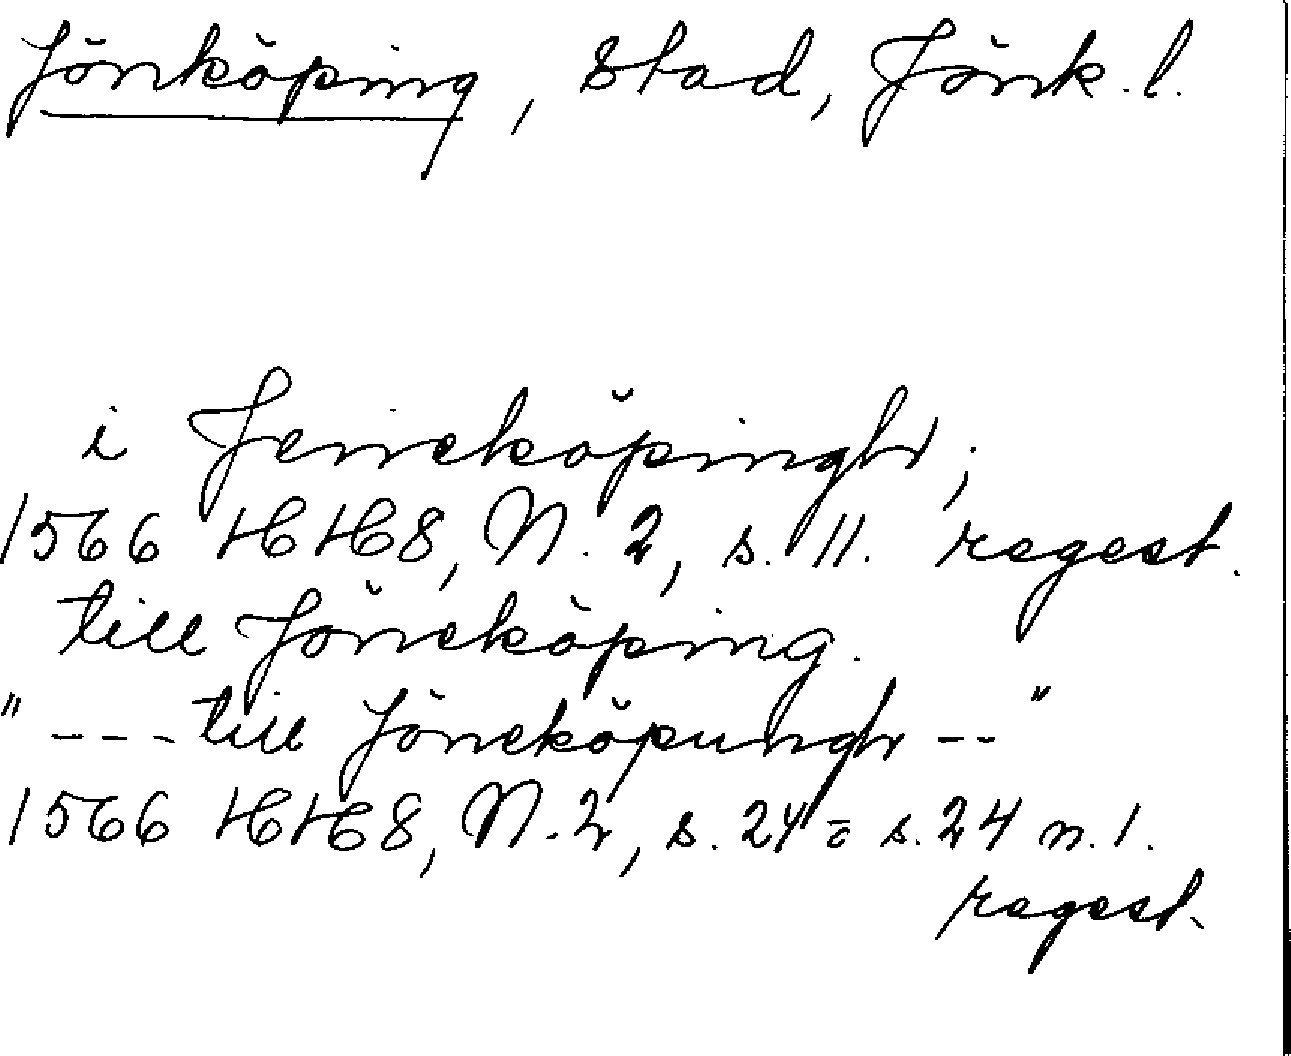 Jönköping, stad, Jönk. l.
i Jeneköpingh;
1566 HHS, N. 2, s. 11. regest.
till Jöneköping.
" --- till Jöneköpungh -- "
1566 HHS, N. 2, s. 24 o s. 24 n. 1.
regest.